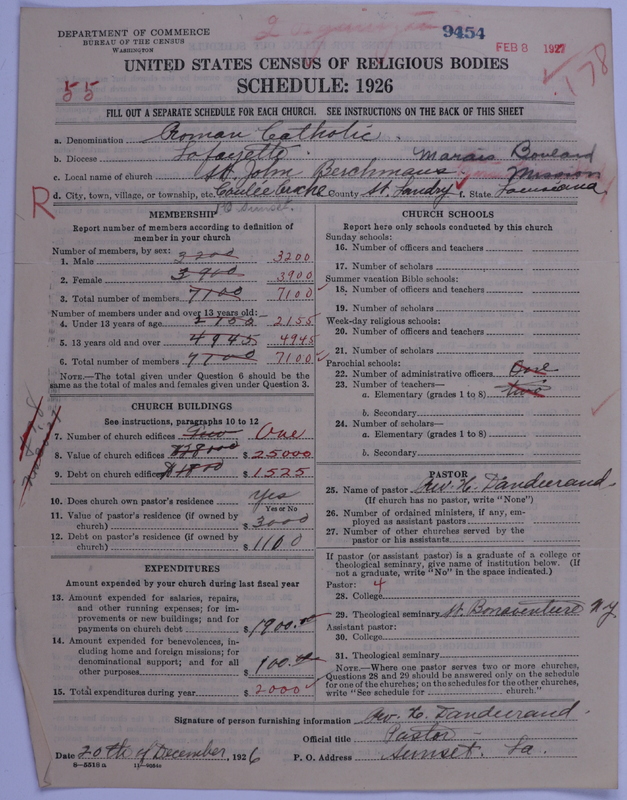 DEPARTMENT OF COMMERCE
BUREAU OF THE CENSUS
WASHINGTON
9454
FEB 8 1927
178
UNITED STATES CENSUS OF RELIGIOUS BODIES
SCHEDULE: 1926
55
FILL OUT A SEPARATE SCHEDULE FOR EACH CHURCH. SEE INSTRUCTIONS ON THE BACK OF THIS SHEET
a. Denomination Roman Catholic.
b. Diocese Lafayette.
c. Local name of church St. John Berchmans Mission
d. City, town, village, or township, etc. Coulee Croche County St. Landry f. State Louisiana
R
Sunset.
MEMBERSHIP
Report number of members according to definition of member in your church
Number of members, by sex:
1. Male 3200 3200
2. Female 3900 3900
3. Total number of members 7100 7100
Number of members under and over 13 years old:
4. Under 13 years of age 2155
5. 13 years old and over 4945 4945
6. Total number of members 7100
NOTE.—The total given under Question 6 should be the same as the total of males and females given under Question 3.
CHURCH BUILDINGS
See instructions, paragraphs 10 to 12
7. Number of church edifices Two One
8. Value of church edifices $ 25000
9. Debt on church edifices $ 1525
10. Does church own pastor's residence Yes
Yes or No
11. Value of pastor's residence (if owned by church) $ 3000
12. Debt on pastor's residence (if owned by church) $ 1100
EXPENDITURES
Amount expended by your church during last fiscal year
13. Amount expended for salaries, repairs, and other running expenses; for improvements or new buildings; and for payments on church debt $ 1900.00
14. Amount expended for benevolences, including home and foreign missions; for denominational support; and for all other purposes $ 100.00
15. Total expenditures during year $ 2000
CHURCH SCHOOLS
Report here only schools conducted by this church
Sunday schools:
16. Number of officers and teachers
17. Number of scholars
Summer vacation Bible schools:
18. Number of officers and teachers
19. Number of scholars
Week-day religious schools:
20. Number of officers and teachers
21. Number of scholars
Parochial schools:
22. Number of administrative officers One
23. Number of teachers—
a. Elementary (grades 1 to 8) two
b. Secondary
24. Number of scholars—
a. Elementary (grades 1 to 8)
b. Secondary
PASTOR
25. Name of pastor Rev. H.
(If church has no pastor, write "None")
26. Number of ordained ministers, if any, employed as assistant pastors
27. Number of other churches served by the pastor or his assistants
If pastor (or assistant pastor) is a graduate of a college or theological seminary, give name of institution below. (If not a graduate, write "No" in the space indicated.)
Pastor: 4
28. College
29. Theological seminary St. Bonaventure N.Y
Assistant pastor:
30. College
31. Theological seminary
NOTE.—Where one pastor serves two or more churches, Questions 28 and 29 should be answered only on the schedule for one of the churches; on the schedules for the other churches, write "See schedule for church."
Signature of person furnishing information Rev. H.
Official title Pastor
Date 20th of December, 1926 P. O. Address Sunset. La.
8—5518a 11—9554a